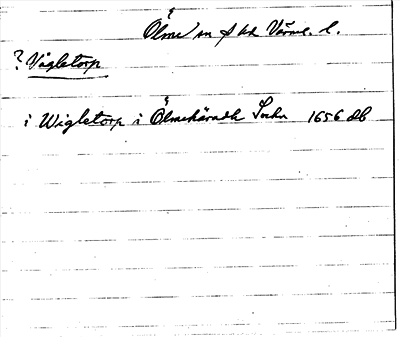 Ölme sn o hd Värml. l.
? Vågletorp
i Wigletorp i Ölmehäradh Sochn 1656 db